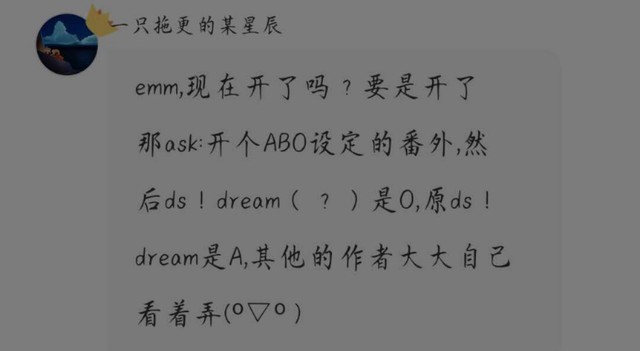 一只拖更的某星辰
emm,现在开了吗？要是开了
那ask:开个ABO设定的番外,然
后ds！dream（？）是O,原ds！
dream是A,其他的作者大大自己
看着弄(º▽º)